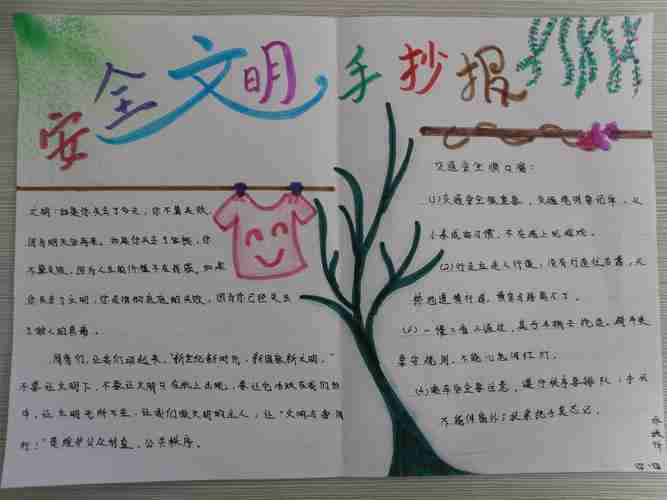 安全文明手抄报
文明:如果你失去了今天,你不算失败,
因为明天会再来。如果你失去了金钱,你
不算失败,因为人生的价值不在钱袋。如果
你失去了文明,你是彻彻底底的失败,因为你已经失去
了做人的真谛。
同学们,让我们动起来,“新世纪新时光,新国家新文明。”
不要让文明下,不要让文明只在纸上出现,要让它活跃在我们
中,让文明无所不在,让我们做文明的主人,让“文明与
行!”是维护公众利益,公共秩序。
交通安全顺口溜:
(1)交通安全很重要,交通规则要记牢,从
小养成好习惯,不在路上玩游戏。
(2)行走应走人行道,没有行道往右靠,天
桥地道横行道,横穿马路离不了。
一慢二看三通过,莫与车辆去抢道。骑车更
要守规则,不能心急闯红灯。
(4)乘车安全要注意,遵守秩序要排队;手头
不能伸窗外,扶紧把手莫忘记。